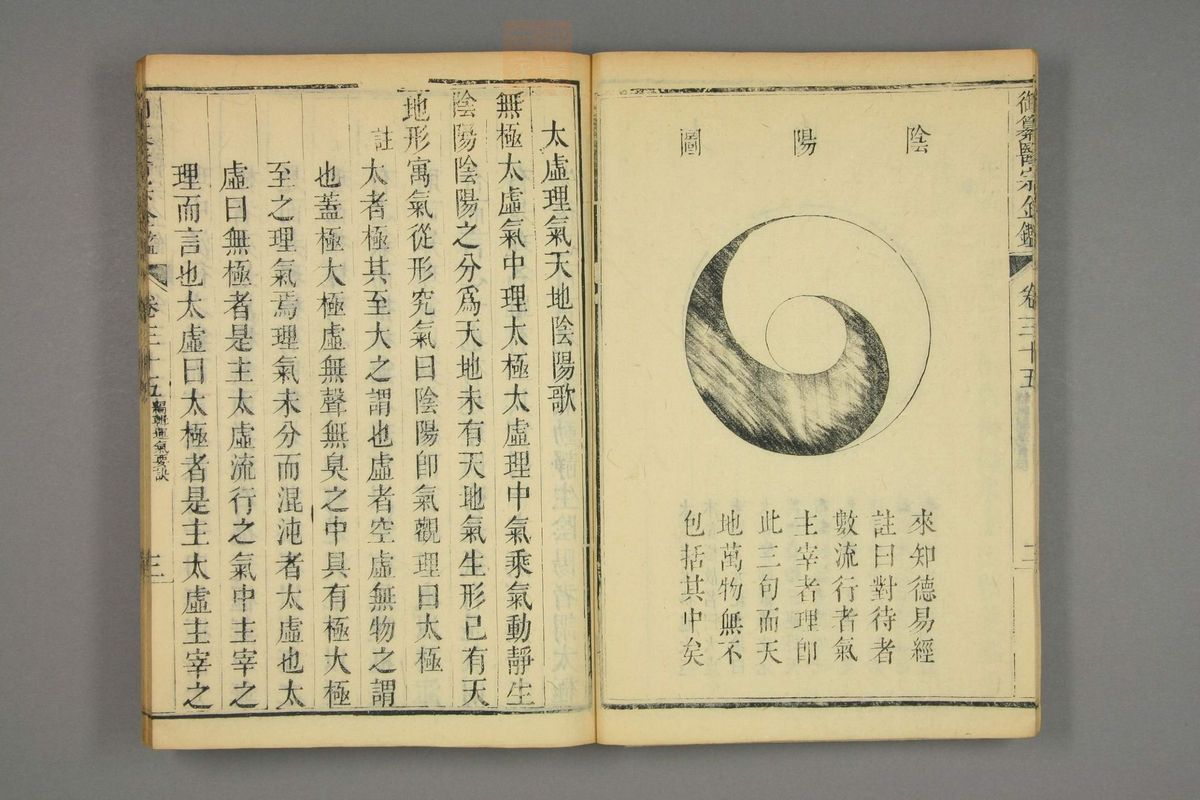 御纂醫宗金鑑
卷三十五
三
陰陽圖
來知德易經
註曰對待者
數流行者氣
主宰者理即
此三句而天
地萬物無不
包括其中矣
太虛理氣天地陰陽歌
無極太虛氣中理太極太虛理中氣乘氣動靜生
陰陽陰陽之分為天地未有天地氣生形已有天
地形寓氣從形究氣曰陰陽即氣觀理曰太極
註
太者極其至大之謂也虛者空虛無物之謂
也蓋極大極虛無聲無臭之中具有極大極
至之理氣焉理氣未分而混沌者太虛也太
虛曰無極者是主太虛流行之氣中主宰之
理而言也太虛曰太極者是主太虛主宰之
卷三十五
編輯運氣要訣
三